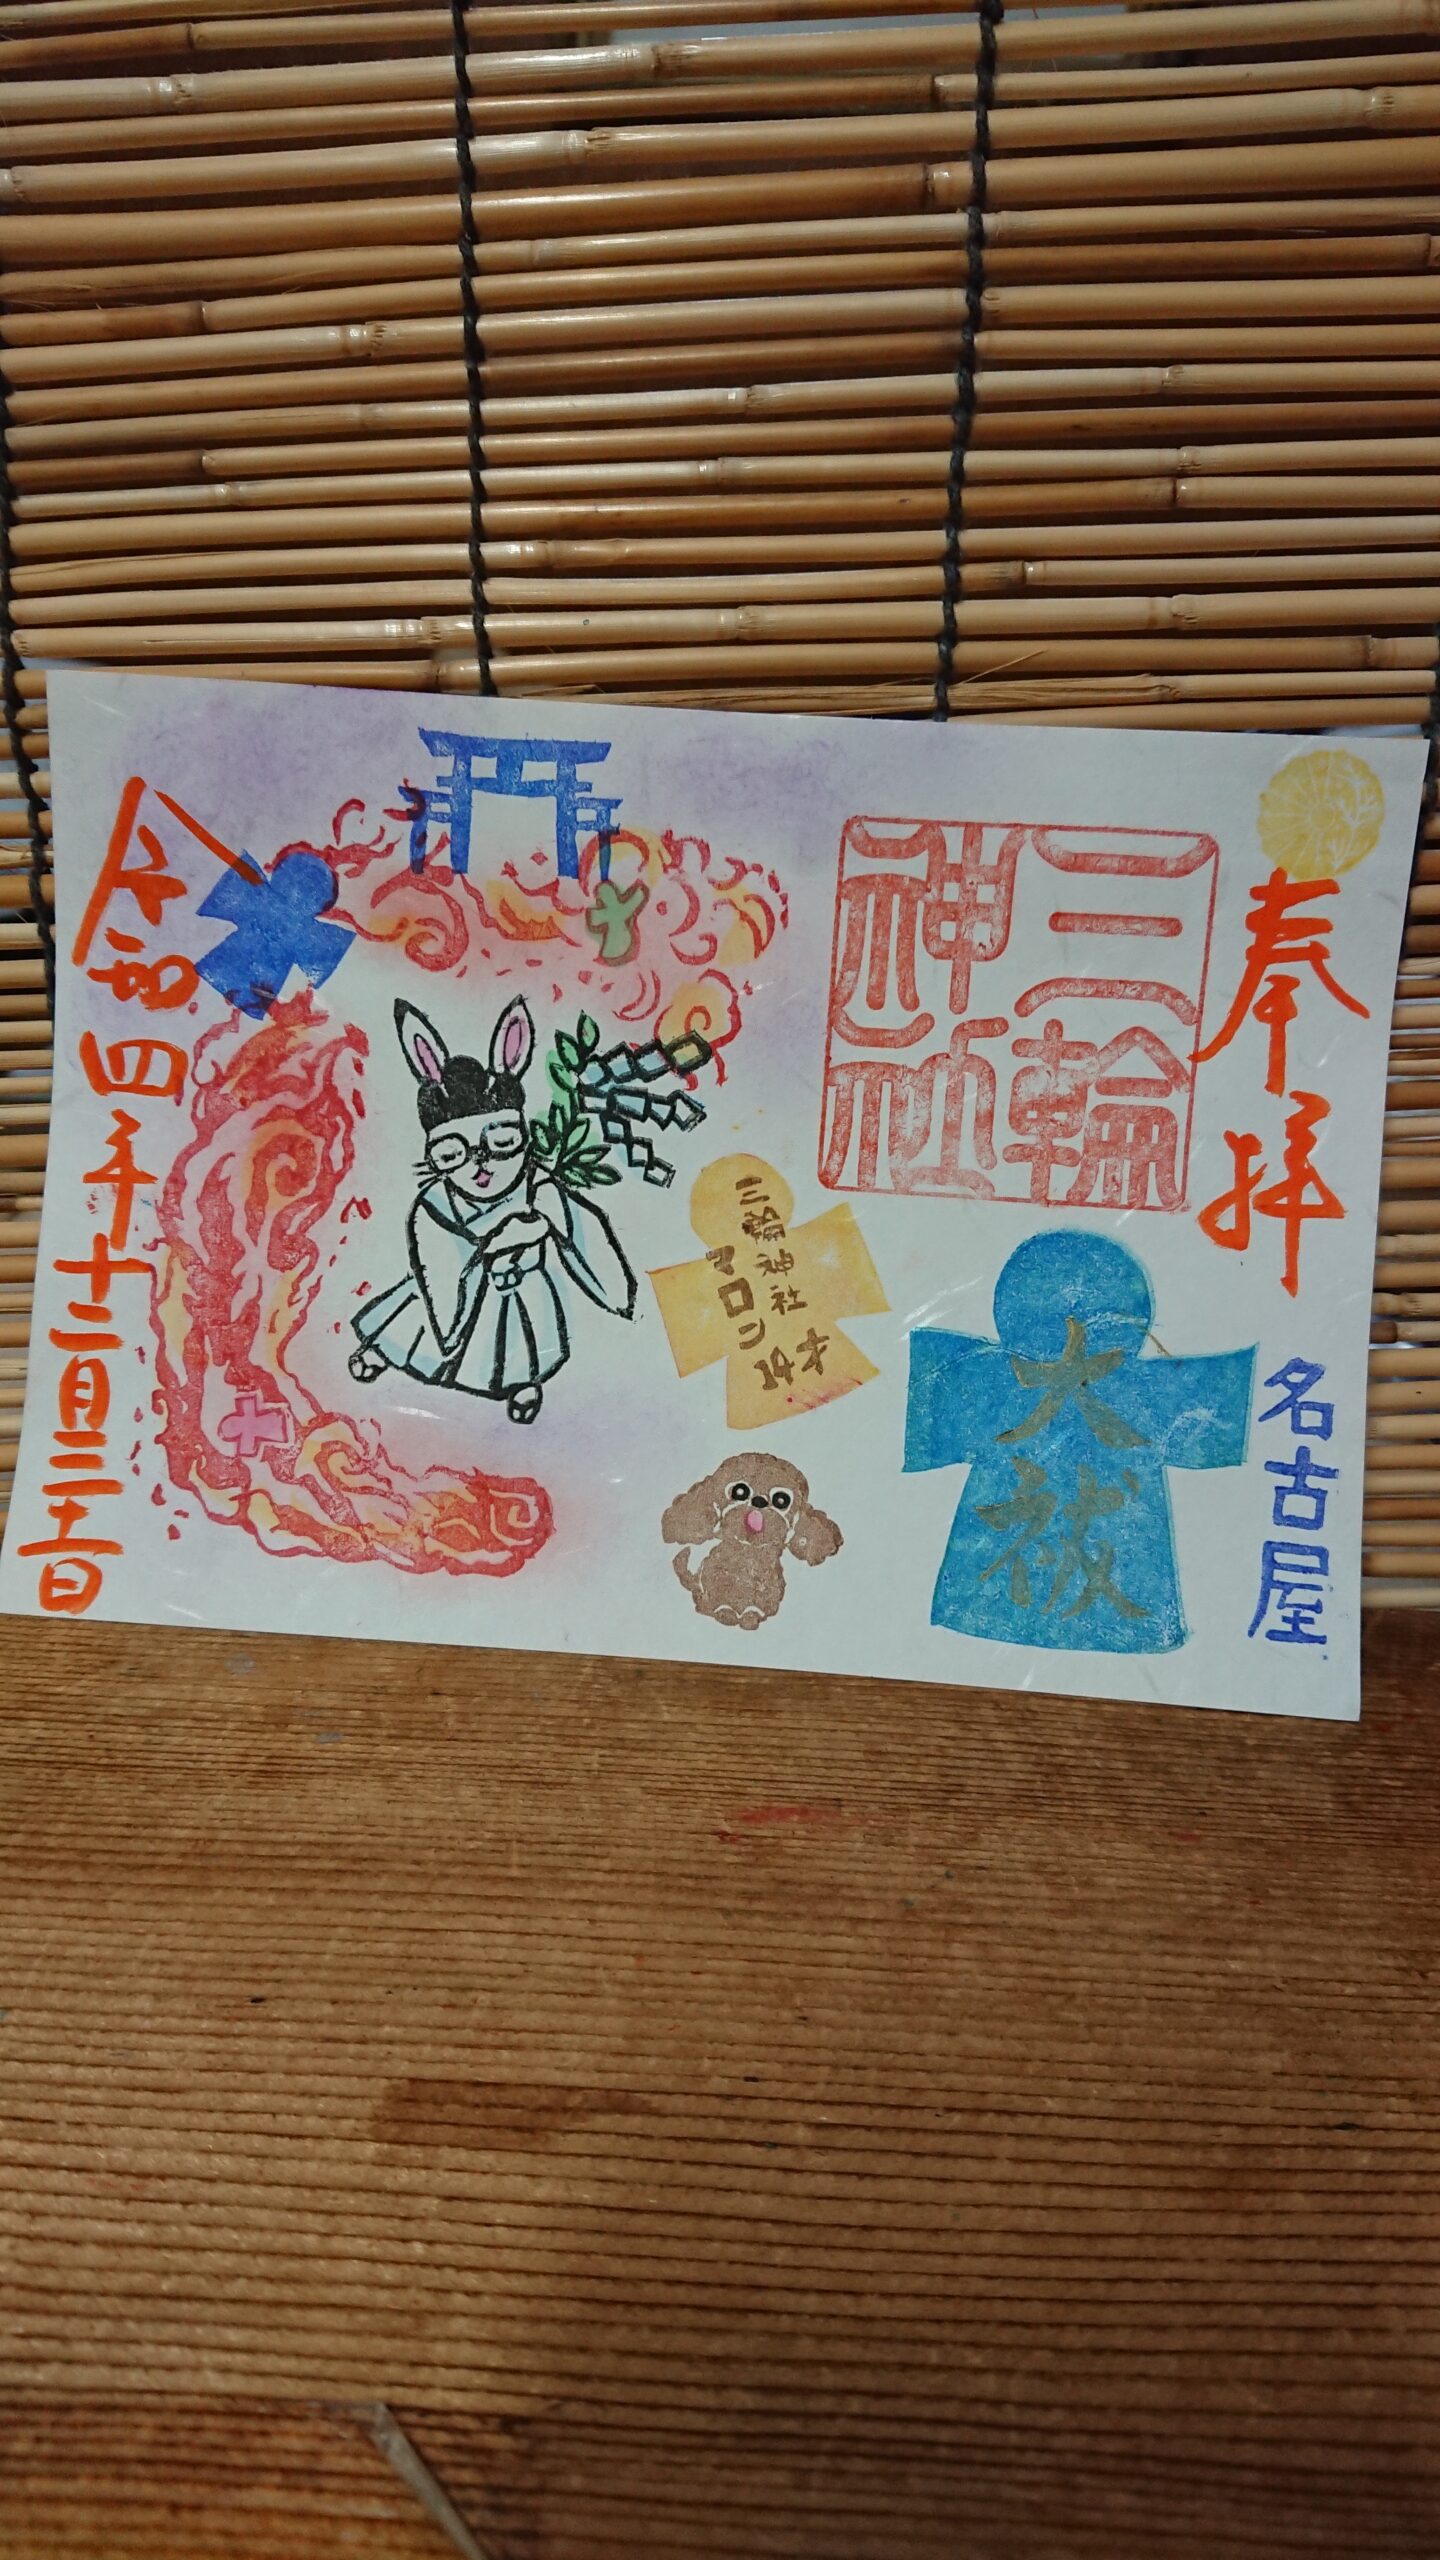 奉拝
名古屋
三輪
神社
大祓
三輪神社
マロン
14才
令和四年十二月三十一日